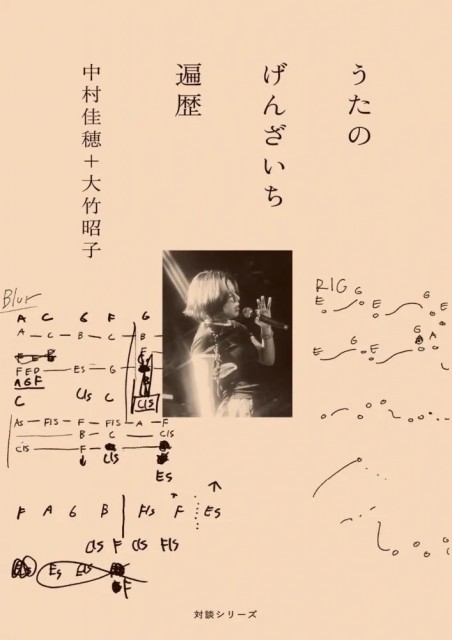 うたの
げんざいち
遍歴
中村佳穂＋大竹昭子
Blur
A C G F G
A — C — B — C — B
FED — ES — G
AGF
C CIS C CIS
AS — FIS — F — FIS — A — F
B — C — CIS
CIS — F
CIS
ES
F A G B FIS F ES
CIS F CIS FIS
ES
F
RIG
E G E G
E
E G E G A
対談シリーズ